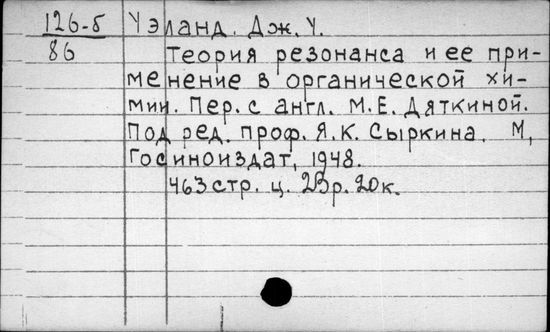 126-б Уэланд. Дж. У.
86 Теория резонанса и ее при-
менение в органической хи-
мии. Пер. с англ. М.Е. Дяткиной.
Под ред. проф. Я.К. Сыркина. М,
Госиноиздат, 1948.
463 стр. ц. 23р. 20к.